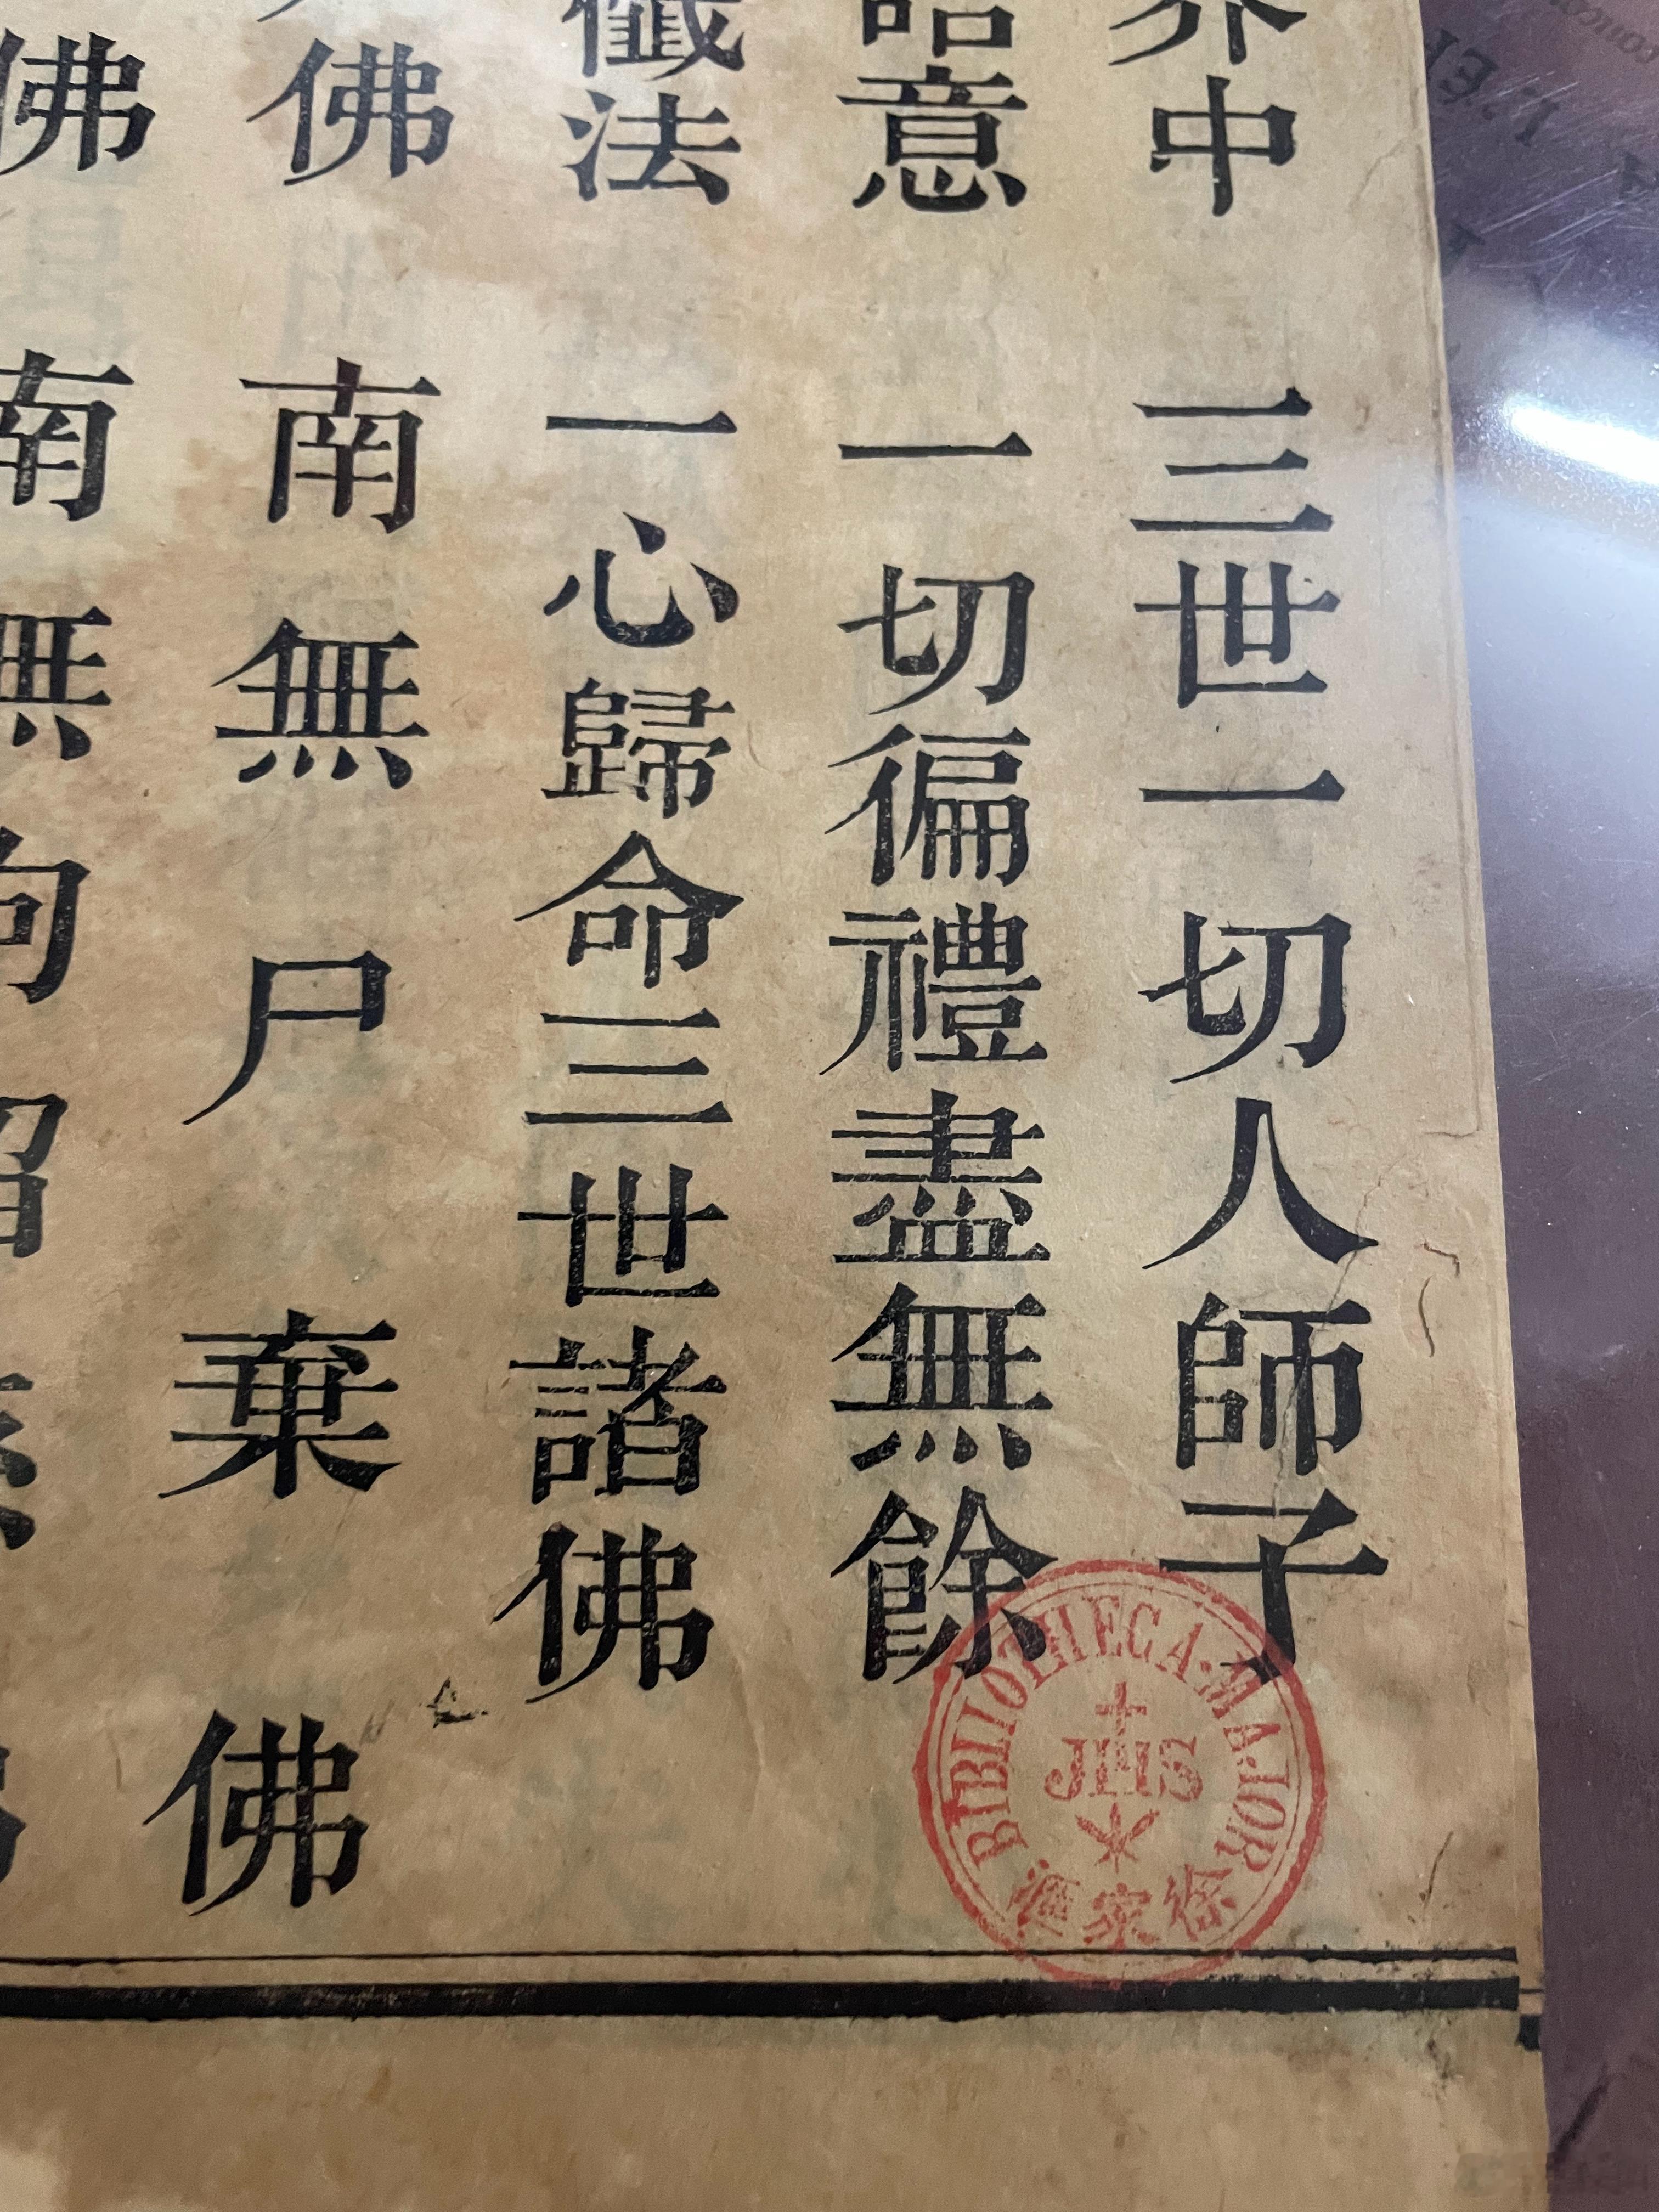 中　三世一切人師子
意　一切徧禮盡無餘
懺法　一心歸命三世諸佛
佛　南無尸棄佛
佛　南無
BIBLIOTHECA·MAJOR
JHS
徐家滙